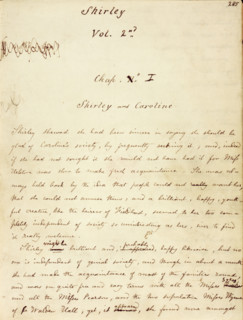 265
Shirley
Vol. 2nd
Chap. I
Shirley and Caroline
Shirley shewed she had been sincere in saying she should be
glad of Caroline's society, by frequently seeking it; and, indeed
if she had not sought it she would not have had it for Miss
Helstone was slow to make fresh acquaintance. She was al-
ways held back by the idea that people could not want her,
that she could not amuse them; and a brilliant, happy, youth-
ful creature like the heiress of Fieldhead, seemed to her too com-
pletely independent of society so uninteresting as hers, ever to find
it really welcome.
Shirley might be brilliant and, probably, happy likewise, but no
one is independent of genial society; and though in about a month
she had made the acquaintance of most of the families round,
and was on quite free and easy terms with all the Misses Sykes,
and all the Misses Pearson, and the two superlative Misses Wynne
of Walden Hall, yet, it appeared, she found none amongst